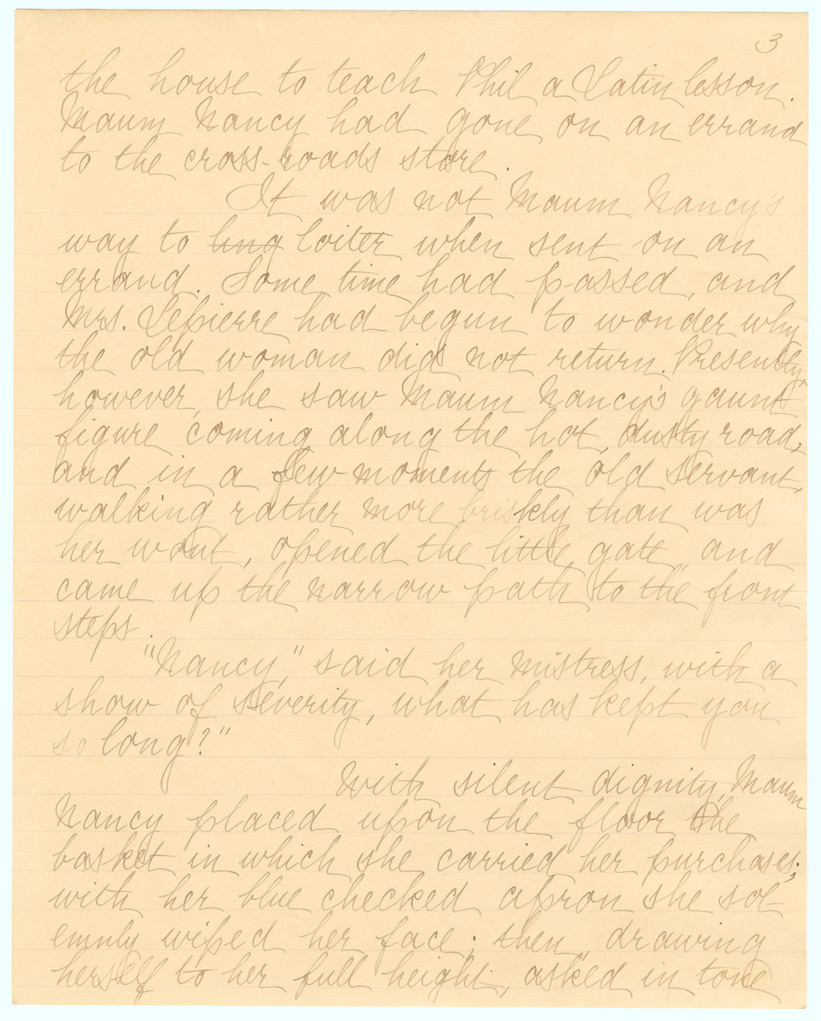 3
the house to teach Phil a Latin lesson.
Maum Nancy had gone on an errand
to the cross-roads store.
It was not Maum Nancy's
way to ling loiter when sent on an
errand. Some time had passed, and
Mrs. Lepierre had begun to wonder why
the old woman did not return. Presently,
however, she saw Maum Nancy's gaunt
figure coming along the hot, dusty road,
and in a few moments the old servant,
walking rather more briskly than was
her wont, opened the little gate, and
came up the narrow path to the front
steps.
"Nancy," said her mistress, with a
show of severity, what has kept you
so long?"
With silent dignity, Maum
Nancy placed upon the floor the
basket in which she carried her purchases;
with her blue checked apron she sol-
emnly wiped her face; then, drawing
herself to her full height, asked in tone